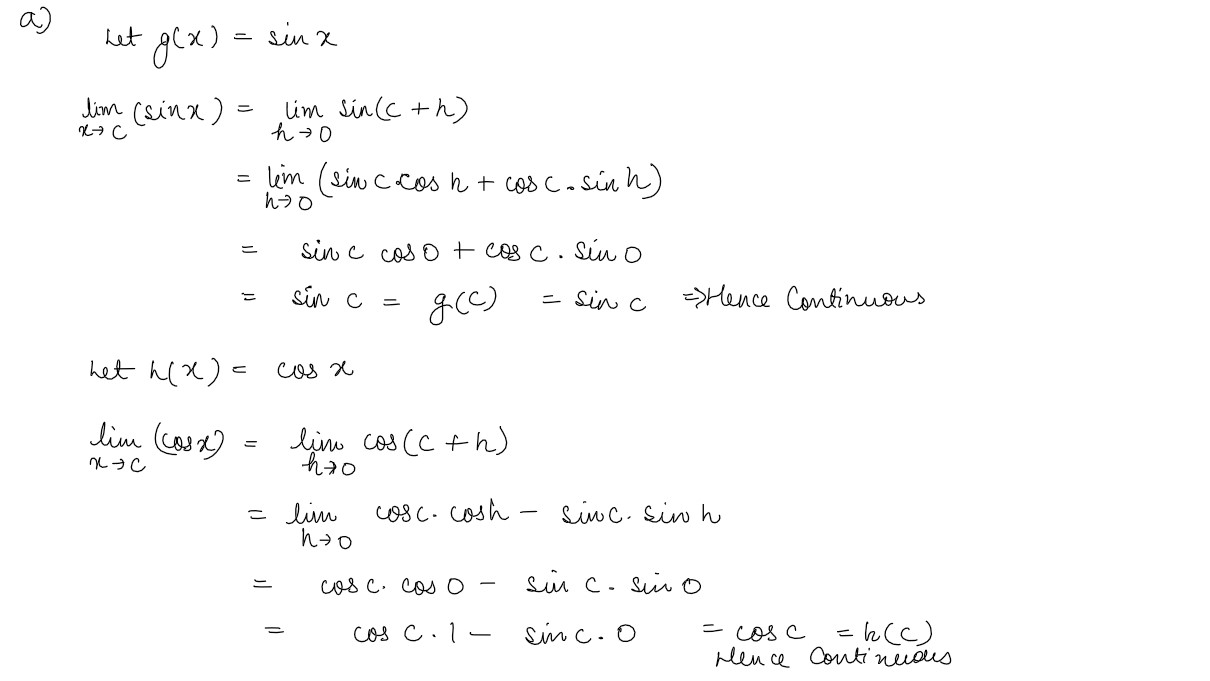 a) Let g(x) = sin x
lim x→c (sin x) = lim h→0 sin(c + h)
= lim h→0 (sin c · cos h + cos c · sin h)
= sin c cos 0 + cos c · sin 0
= sin c = g(c) = sin c ⇒ Hence Continuous
Let h(x) = cos x
lim x→c (cos x) = lim h→0 cos(c + h)
= lim h→0 cos c · cos h − sin c · sin h
= cos c · cos 0 − sin c · sin 0
= cos c · 1 − sin c · 0 = cos c = h(c)
Hence Continuous